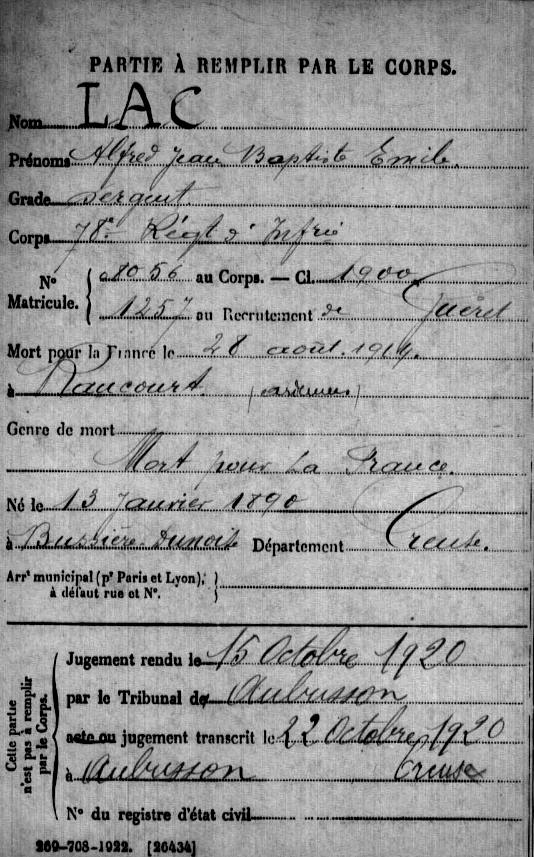 PARTIE À REMPLIR PAR LE CORPS.
Nom LAC
Prénoms Alfred Jean Baptiste Emile.
Grade Sergent
Corps 78e Régt d'Infrie
N° Matricule. 8056 au Corps. — Cl. 1900
1257 au Recrutement de Guéret
Mort pour la France le 28 août 1914.
à Raucourt (ardennes)
Genre de mort
Mort pour La France.
Né le 13 Janvier 1890
à Bussière-Dunoise Département Creuse.
Arrt municipal (pr Paris et Lyon),
à défaut rue et N°.
Jugement rendu le 15 Octobre 1920
par le Tribunal de Aubusson
acte ou jugement transcrit le 22 Octobre 1920
à Aubusson Creuse
N° du registre d'état civil
Cette partie
n'est pas à remplir
par le Corps.
269-708-1922. [26434]